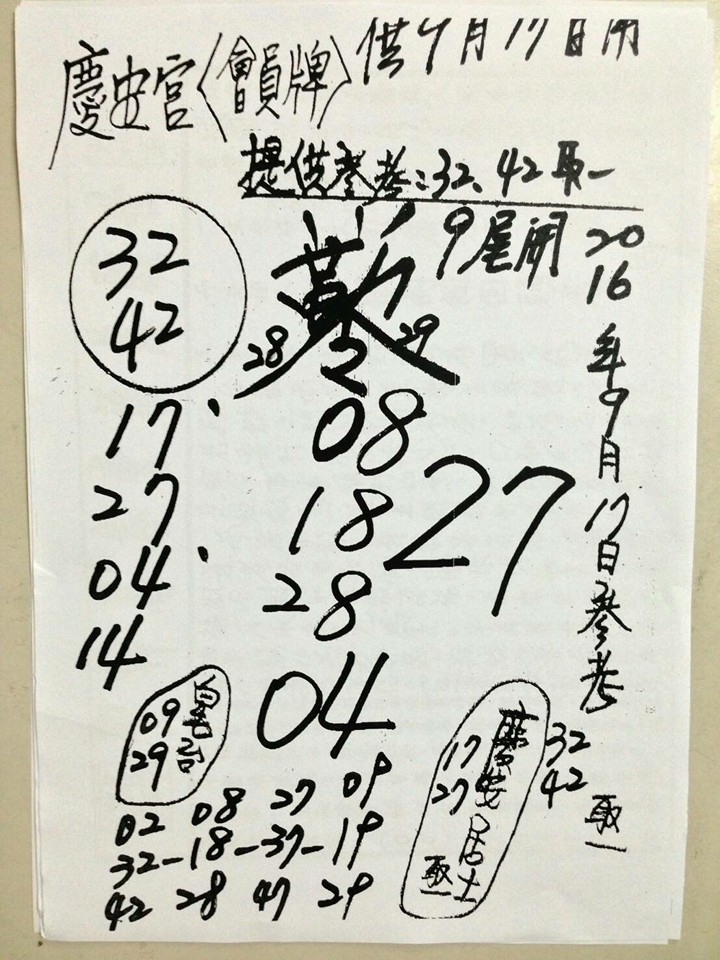 慶安宮〈會員牌〉供9月17日用
提供參考:32、42取一
9尾開
2016年9月17日參考
32
42
28 29
17、
27
04、
14
08
18
28
27
04
09
29
慶安居士
17
27
取一
32
42
取一
02 08 27 09
32-18-37-19
42 28 47 29